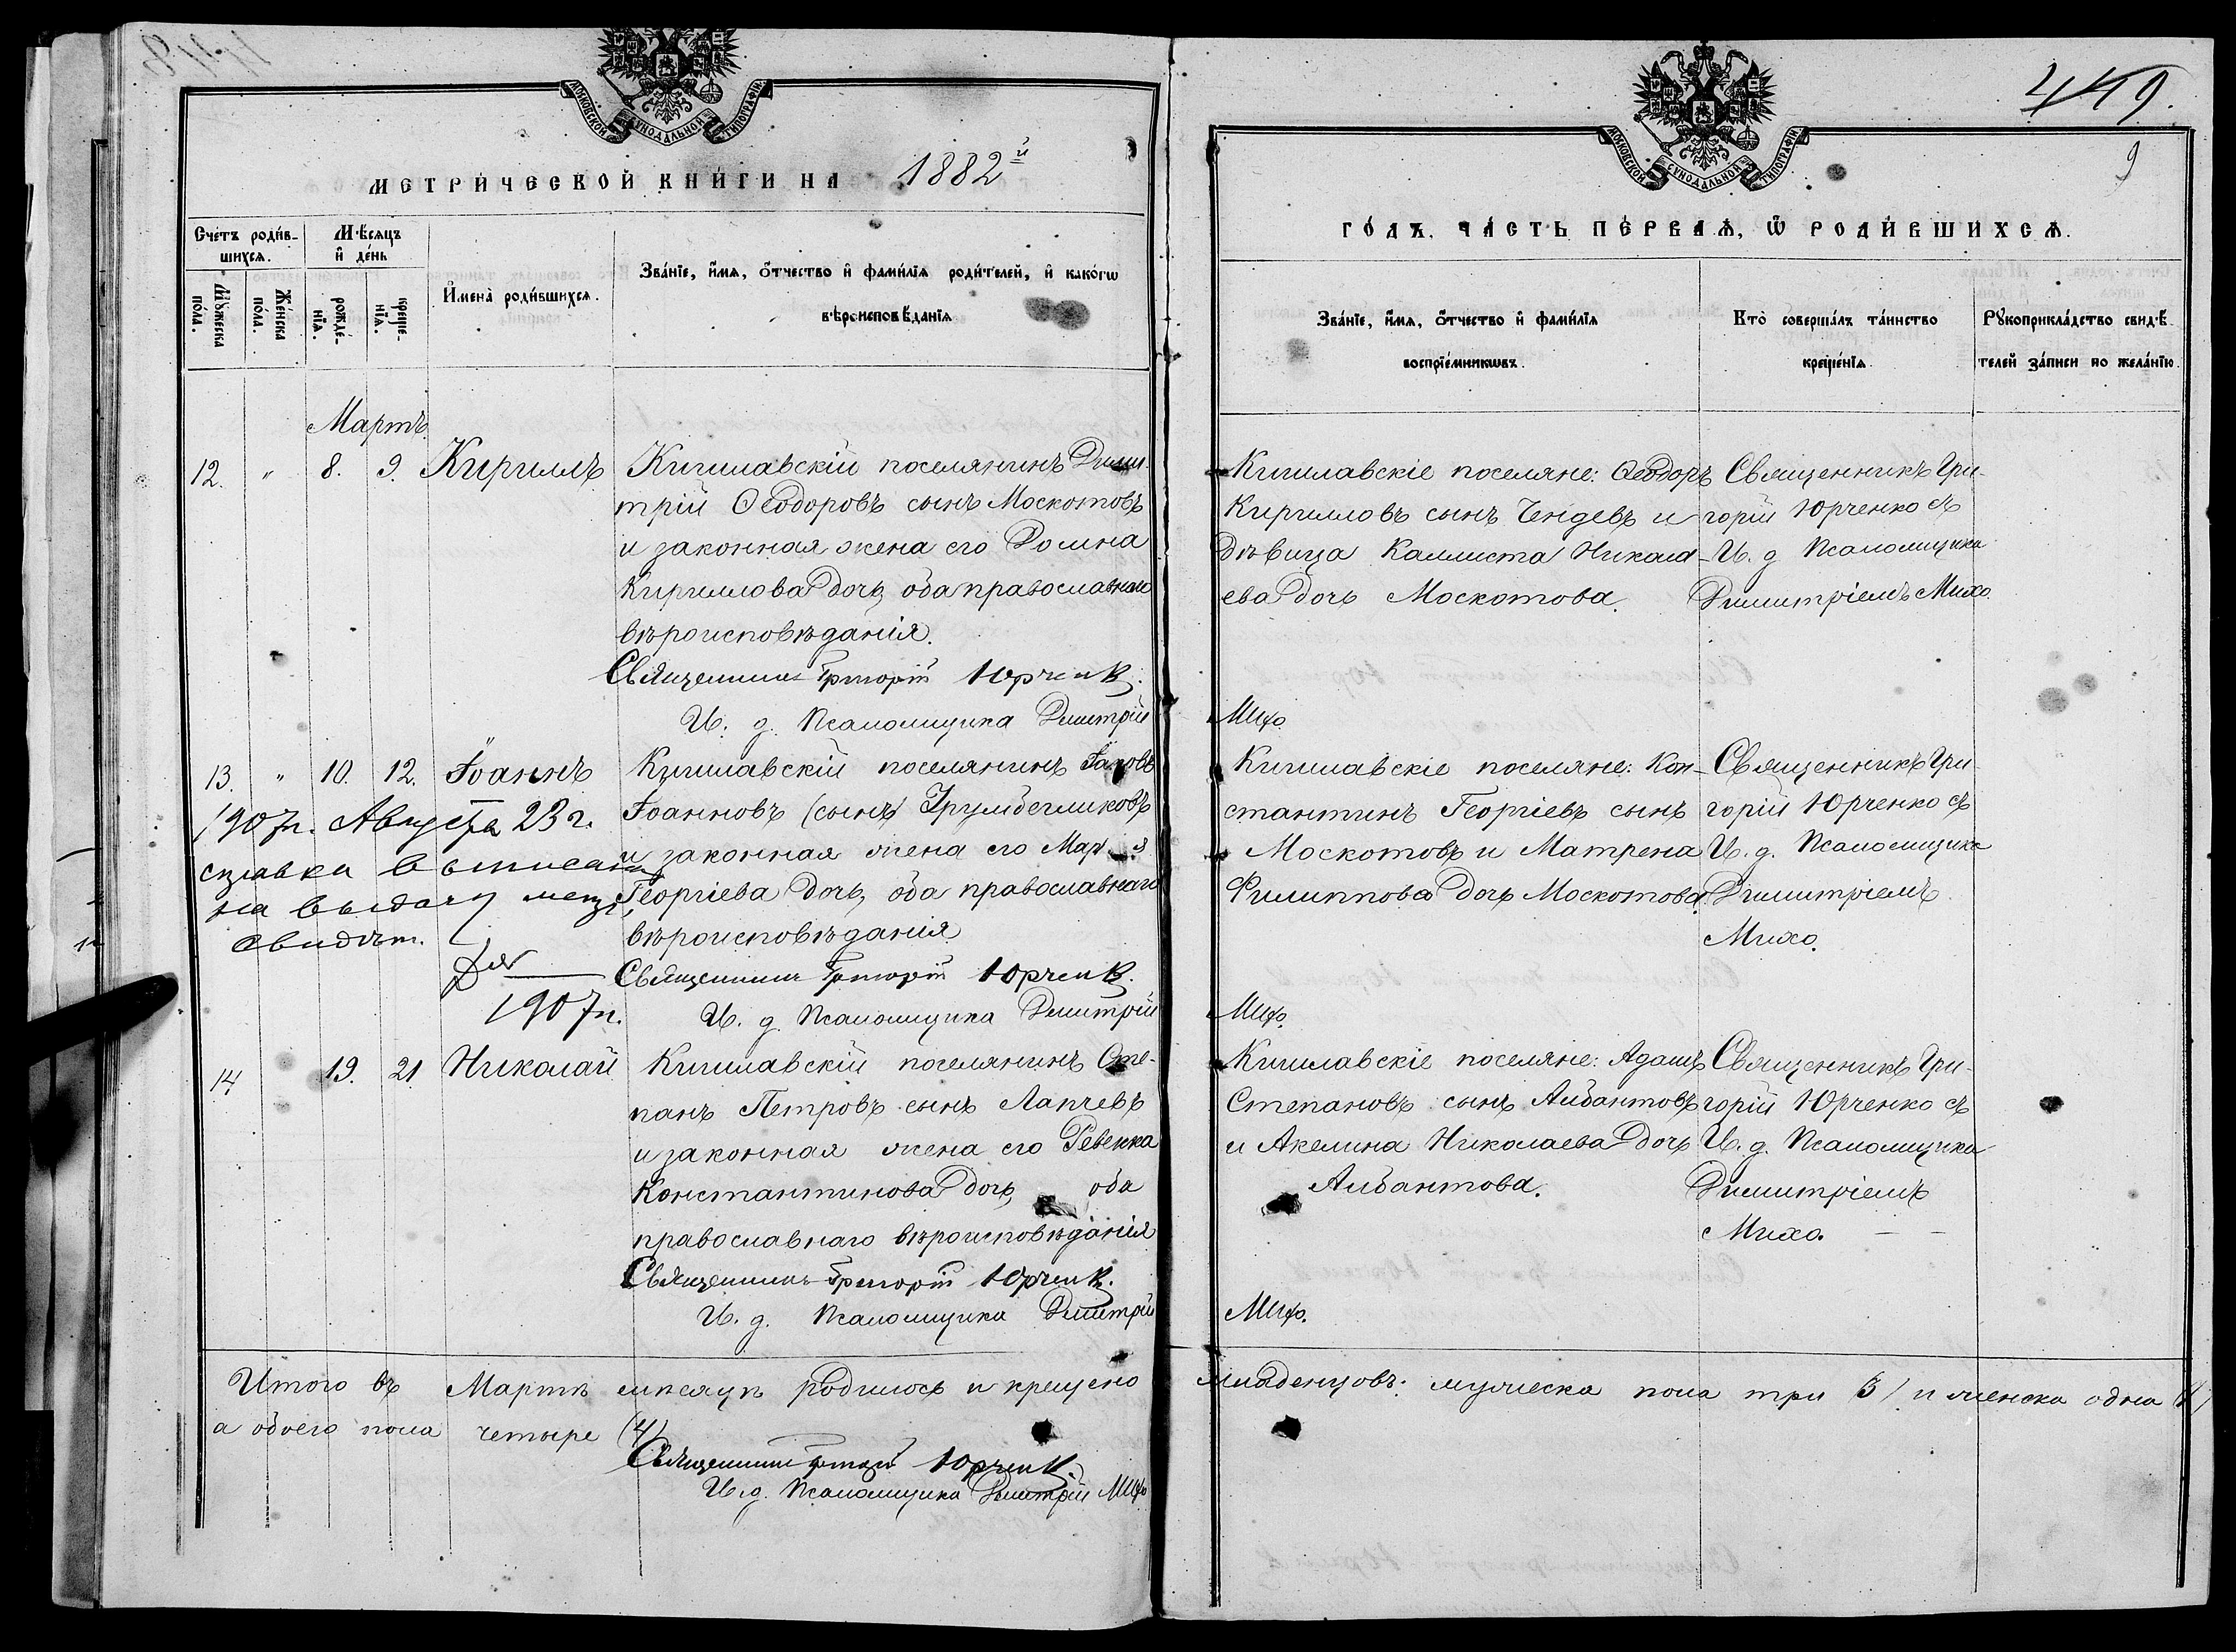 449.
9
МОСКОВСКОЙ СѴНОДАЛЬНОЙ ТИПОГРАФІИ
МЕТРИЧЕСКОЙ КНИГИ НА 1882й
Счетъ родив-
шихся.
Мѣсяцъ
и день
Мꙋжеска
пола.
Женска
пола.
рожде-
нїя.
креще-
нїя.
Имена родившихся.
Званїе, имя, ѻтчество и фамилїя родителей, и какогѡ
вѣроисповѣданїя
Мартъ.
12. " 8. 9. Кириллъ
Кишлавскій поселянинъ Дими-
трій Ѳеодоровъ сынъ Москотовъ
и законная жена его Домна
Кириллова дочь, оба православнаго
вѣроисповѣданія.
Священникъ Григорій Юрченко.
И. д. Псаломщика Димитрій
13. " 10. 12. Іоаннъ
Кишлавскій поселянинъ Іаковъ
Іоанновъ (сынъ)
и законная жена его
Георгіева дочь, оба православнаго
вѣроисповѣданія
Священникъ Григорій Юрченко.
И. д. Псаломщика Димитрій
1907г. Августа 23 г.
справка выписана
на выдачу метр.
свидѣт.
1907г.
14 19. 21 Николай
Кишлавскій поселянинъ Сте-
панъ Петровъ сынъ Лапчевъ
и законная жена его Ревекка
Константинова дочь, оба
православнаго вѣроисповѣданія
Священникъ Григорій Юрченко.
И. д. Псаломщика Димитрій
Итого въ Мартѣ мѣсяцѣ родилось и крещено
а обоего пола четыре (4)
Священникъ Григорій Юрченко.
И. д. Псаломщика Димитрій Михо
МОСКОВСКОЙ СѴНОДАЛЬНОЙ ТИПОГРАФІИ
ГОДЪ, ЧАСТЬ ПЕРВАѦ, Ѡ РОДИВШИХСѦ.
Званїе, имя, ѻтчество и фамилїя
воспрїемникѡвъ.
Кто совершалъ таинство
крещенїя.
Рꙋкоприкладство свидѣ-
телей записи по желанїю.
Кишлавскіе поселяне: Ѳеодоръ
Кирилловъ сынъ Чендевъ и
дѣвица Каллиста Никола-
ева дочь Москотова.
Священникъ Гри-
горій Юрченко съ
И. д. Псаломщика
Димитріемъ Михо.
Михо.
Кишлавскіе поселяне: Кон-
стантинъ Георгіевъ сынъ
Москотовъ и Матрена
Филиппова дочь Москотова.
Священникъ Гри-
горій Юрченко съ
И. д. Псаломщика
Димитріемъ
Михо.
Михо.
Кишлавскіе поселяне: Адамъ
Степановъ сынъ Аибантовъ
и Акелина Николаева дочь
Аибантова.
Священникъ Гри-
горій Юрченко съ
И. д. Псаломщика
Димитріемъ
Михо.
Михо.
младенцовъ: мужеска пола три (3) и женска одна (1)